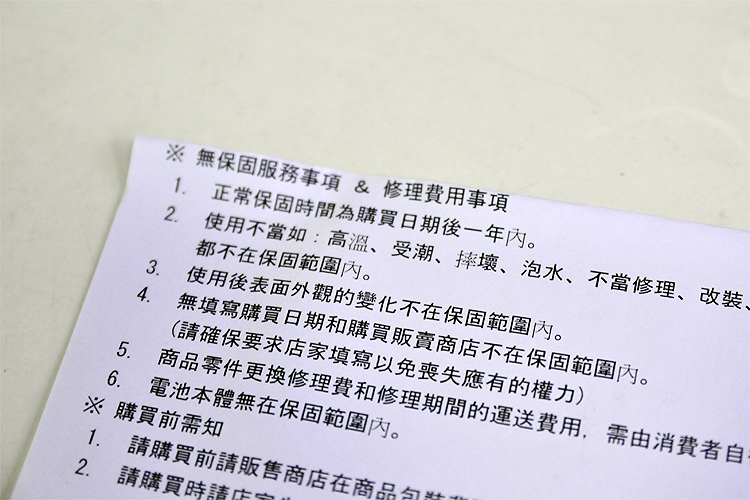 ※ 無保固服務事項 & 修理費用事項
1. 正常保固時間為購買日期後一年內。
2. 使用不當如：高溫、受潮、摔壞、泡水、不當修理、改裝、
都不在保固範圍內。
3. 使用後表面外觀的變化不在保固範圍內。
4. 無填寫購買日期和購買販賣商店不在保固範圍內。
(請確保要求店家填寫以免喪失應有的權力)
5. 商品零件更換修理費和修理期間的運送費用，需由消費者自
6. 電池本體無在保固範圍內。
※ 購買前需知
1. 請購買前請販售商店在商品包裝
2. 請購買時請店家